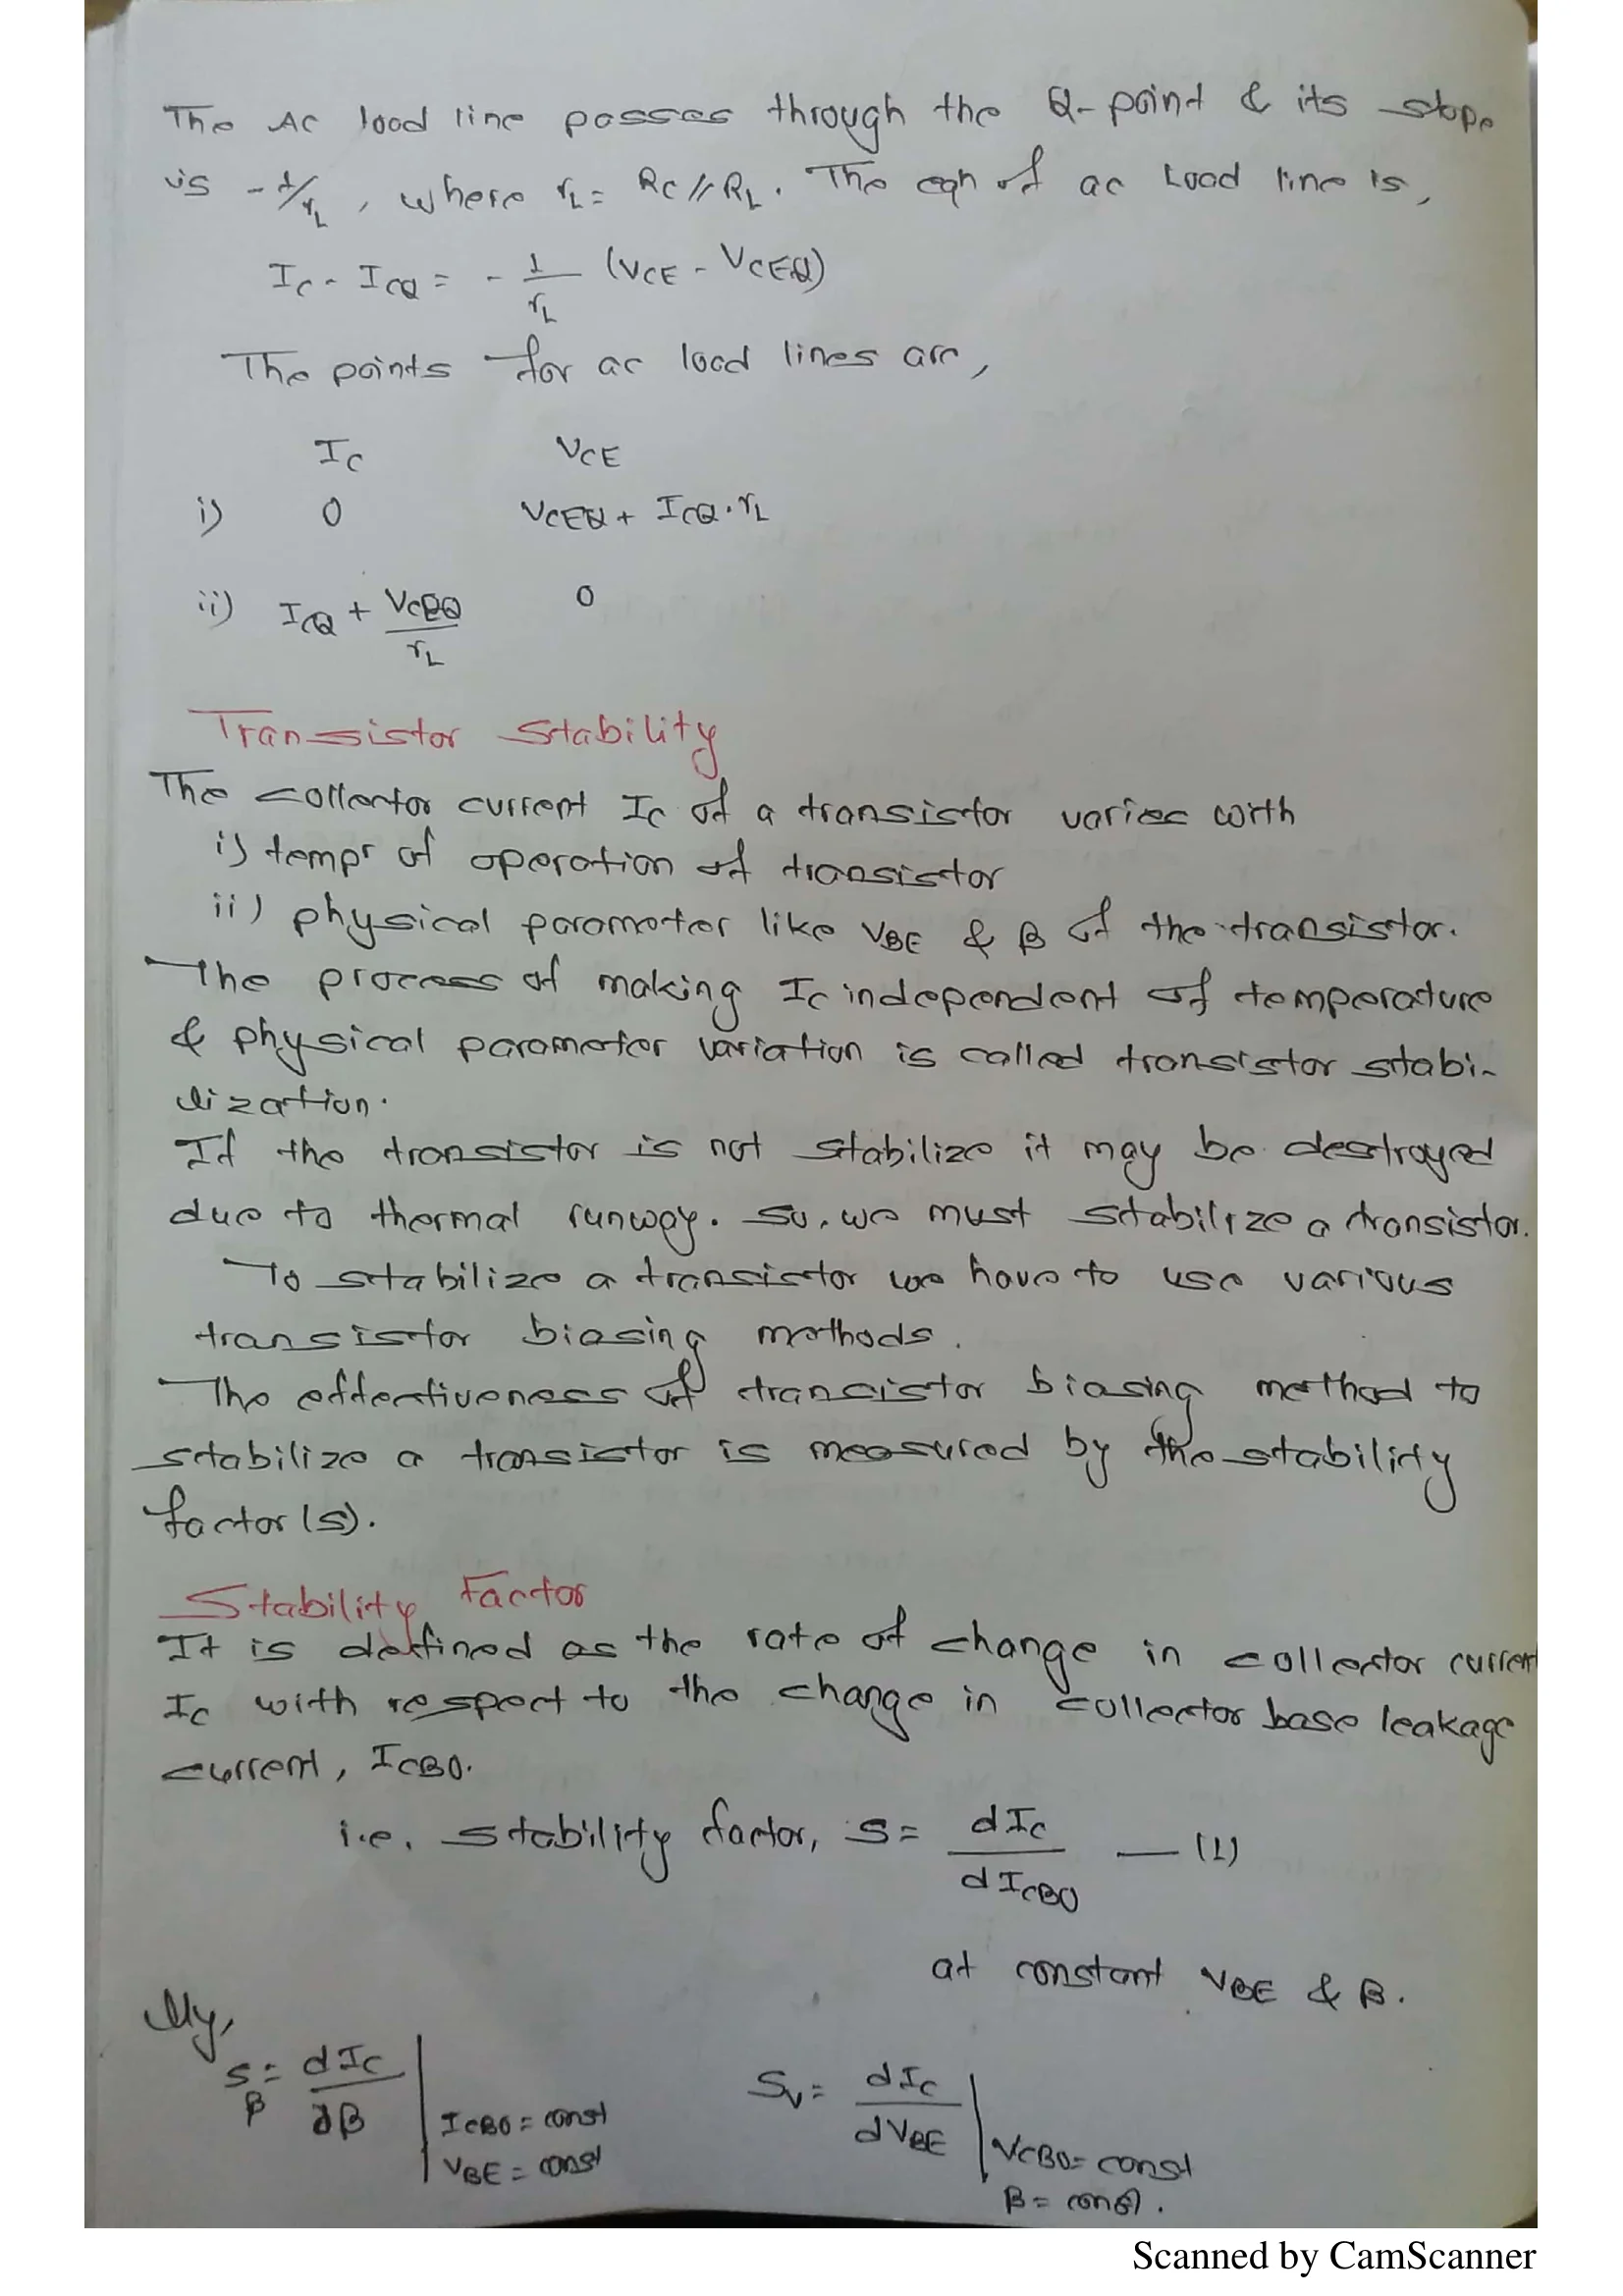 The AC load line passes through the Q-point & its slope
is -1/rL, where rL = RC // RL. The eqn of ac Load line is,
IC - ICQ = - 1/rL (VCE - VCEQ)
The points for ac load lines are,
IC VCE
i) 0 VCEQ + ICQ.rL
ii) ICQ + VCEQ/rL 0
Transistor Stability
The collector current IC of a transistor varies with
i) tempr of operation of transistor
ii) physical parameter like VBE & β of the transistor.
The process of making IC independent of temperature
& physical parameter variation is called transistor stabi-
lization.
If the transistor is not stabilize it may be destroyed
due to thermal runway. So, we must stabilize a transistor.
To stabilize a transistor we have to use various
transistor biasing methods.
The effectiveness of transistor biasing method to
stabilize a transistor is measured by the stability
factor (s).
Stability Factor
It is defined as the rate of change in collector current
IC with respect to the change in collector base leakage
current, ICBO.
i.e. stability factor, S = dIC/dICBO — (1)
at constant VBE & β.
llly,
Sβ = dIC/∂β | ICBO = const VBE = const
SV = dIC/dVBE | VCBO = const β = const.
Scanned by CamScanner